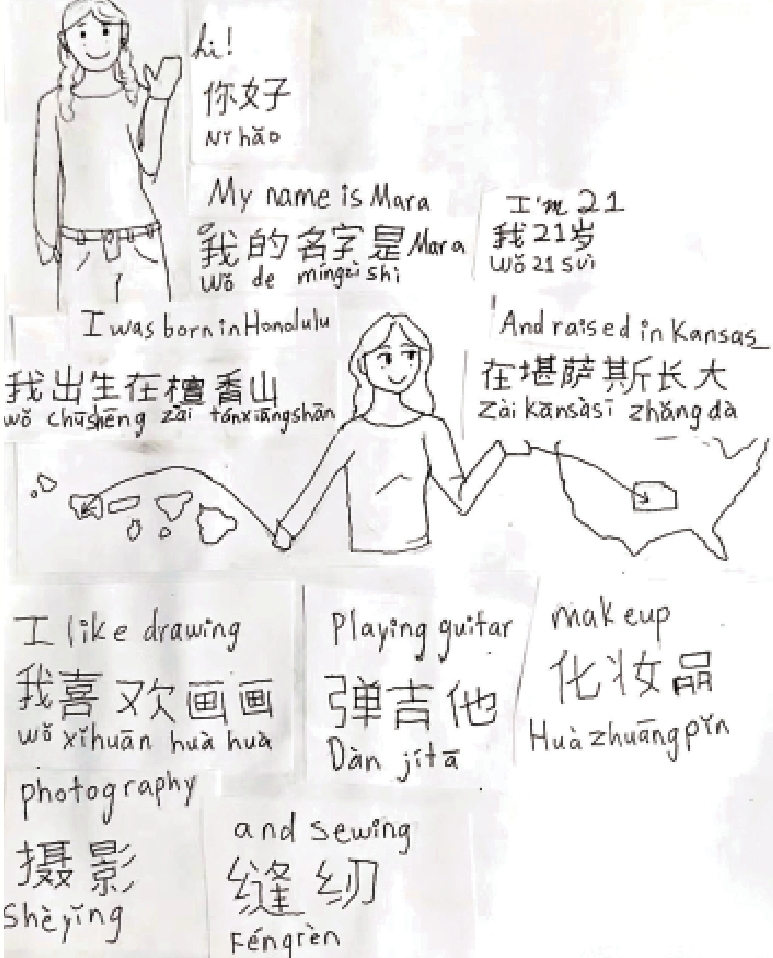 hi!
你好
Nǐ hǎo
My name is Mara
我的名字是 Mara
wǒ de míngzi shì
I'm 21
我21岁
wǒ 21 suì
I was born in Honolulu
我出生在檀香山
wǒ chūshēng zài tánxiāngshān
And raised in Kansas
在堪萨斯长大
zài kānsàsī zhǎng dà
I like drawing
我喜欢画画
wǒ xǐhuān huà huà
Playing guitar
弹吉他
Dàn jítā
makeup
化妆品
Huà zhuāng pǐn
photography
摄影
Shèyǐng
and sewing
缝纫
Féngrèn